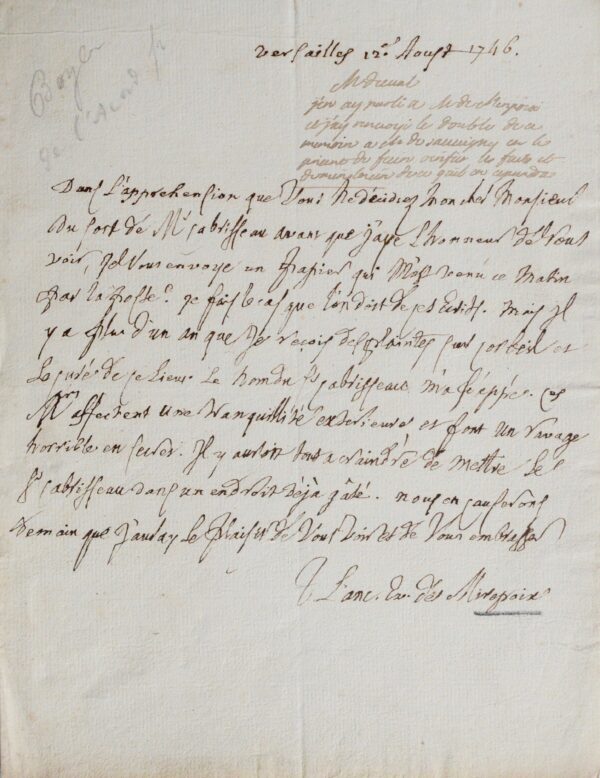 Boyer
de l'Acad. fr
Versailles 12e Aoust 1746.
M duval
j'en ay parlé a M de Mirepoix
et j'ay envoyé le double de ce
memoire a M de Sauvigny en le
priant de faire verifier les faits et
Dans L'apprehension que Vous ne décidiez Mon cher Monsieur
du sort de Mr Cabrisseau avant que j'aye L'honneur de Vous
voir, Je Vous envoye un Papier qui M'est venu ce Matin
Par la Poste. Je fais le cas que l'on doit de ces Ecrits. Mais Il
y a Plus d'un an que Je reçois des Plaintes sur Corbeil et
Le curé de ce Lieu. Le Nom du Sr Cabrisseau
Mrs affectent une tranquillité exterieure et font un ravage
horrible en secret. Il y auroit tout a craindre de Mettre Le
Sr Cabrisseau dans un endroit déjà gâté. nous en causerons
Demain que J'auray Le Plaisir de Vous Voir et de Vous embrasser
L'anc. Ev. de Mirepoix